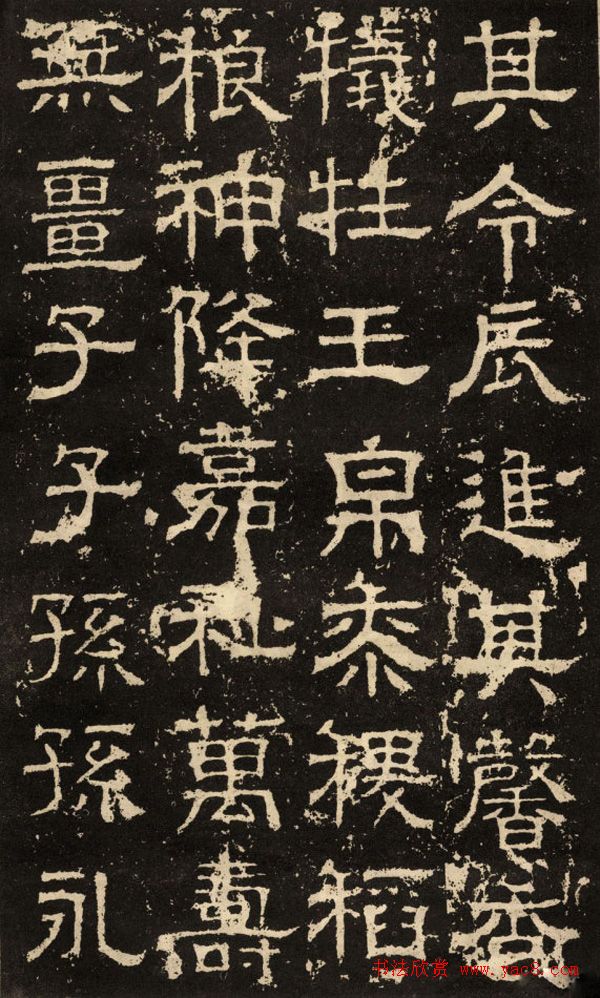 其令辰進其馨香
犧牲王帛黍稷稻
稂神降嘉祉萬壽
無畺子子孫孫永
书法欣赏 www.yac8.com